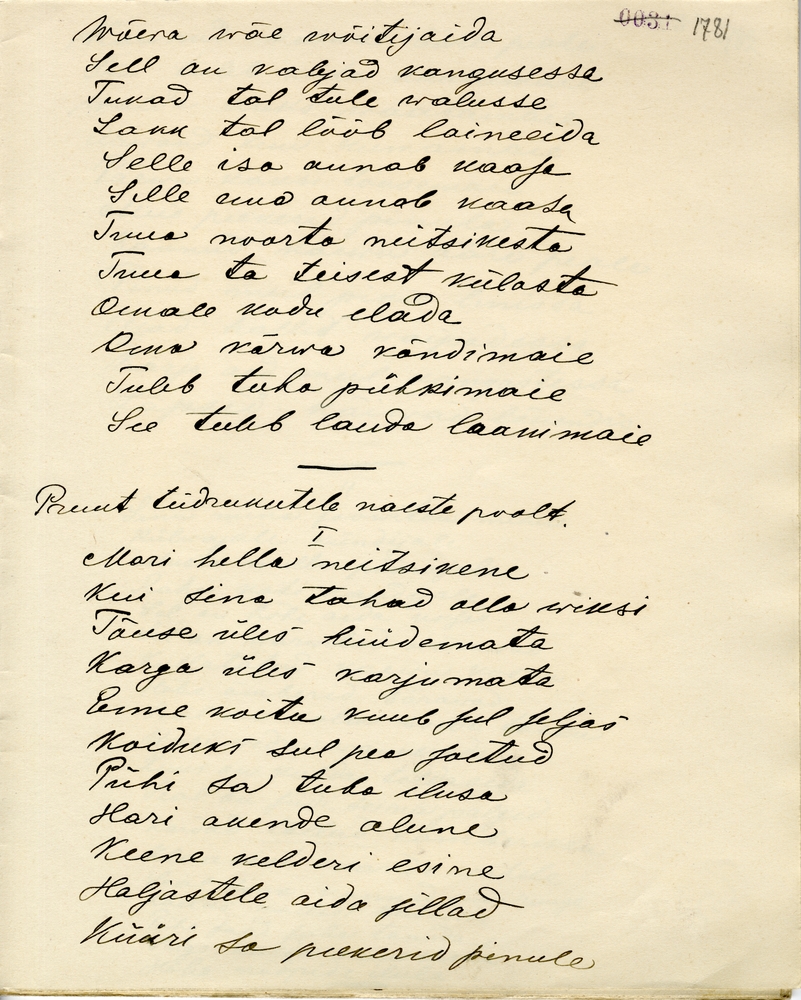 0031 1781
Wõera wäe wõitijaida
Sell on kaljad kangusessa
Tukad tal tule walusse
Lakk tal lööb laineeida
Selle isa annab kaasa
Selle ema annab kaasa
Tuua noorta neitsikesta
Tuua ta teisest külasta
Omale kodu elada
Oma kõrwa kõndimaie
Tuleb tuba pühkimaie
See tuleb lauda laanimaie
Pruut tüdrukutele naeste poolt.
I
Mari hella neitsikene
Kui sina tahad olla wiksi
Tõuse üles hüüdemata
Karga üles karjumata
Enne koitu kuub sul seljas
Koiduks sul pea soetud
Pühi sa tuba ilusa
Hari akende alune
Keene kelderi esine
Haljastele aida sillad
Küüri sa peekerid pinule